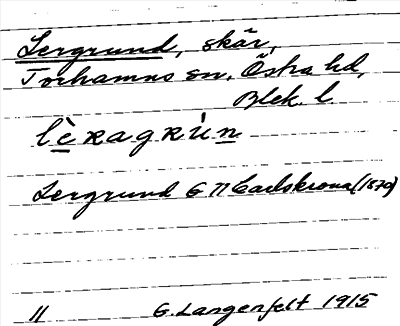 Lergrund, skär,
Torhamns sn, Östra hd,
Blek. l
lèragrùn
Lergrund G II Carlskrona (1870)
11 G. Langenfelt 1915